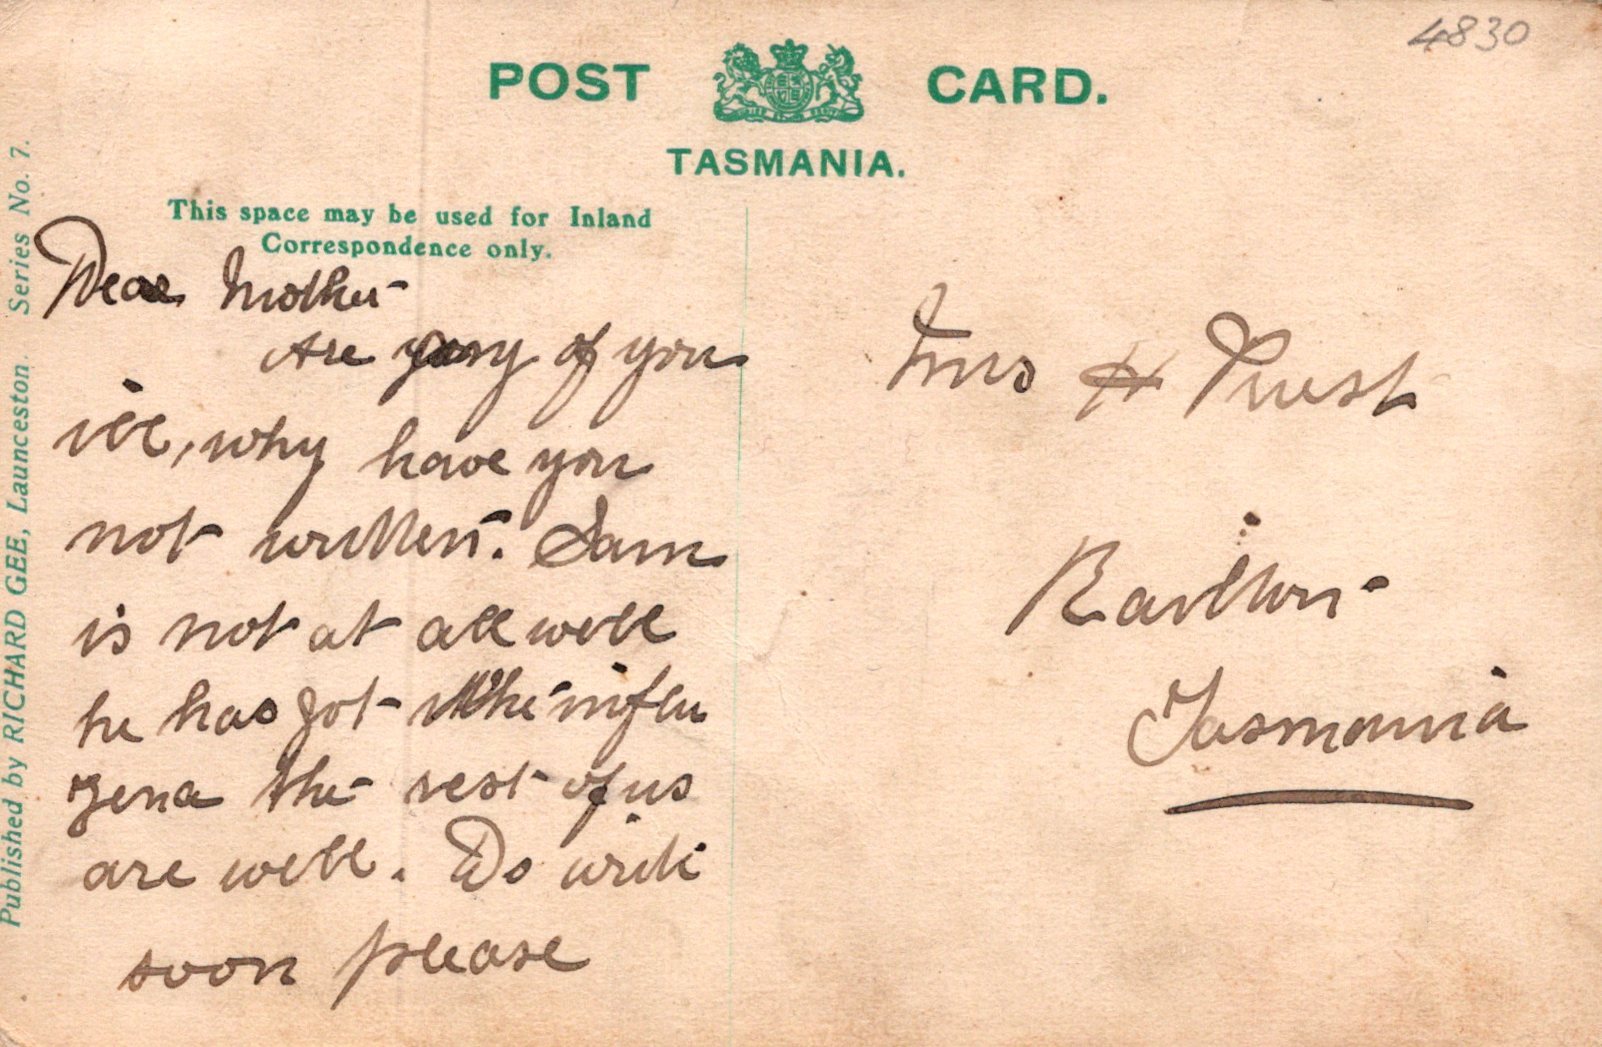 4830
POST CARD.
TASMANIA.
This space may be used for Inland
Correspondence only.
Published by RICHARD GEE, Launceston. Series No. 7.
Dear Mother
Are any of you
ill, why have you
not written. Sam
is not at all well
he has got the influ
zena the rest of us
are well. Do write
soon please
Mrs H Trust
Railton
Tasmania